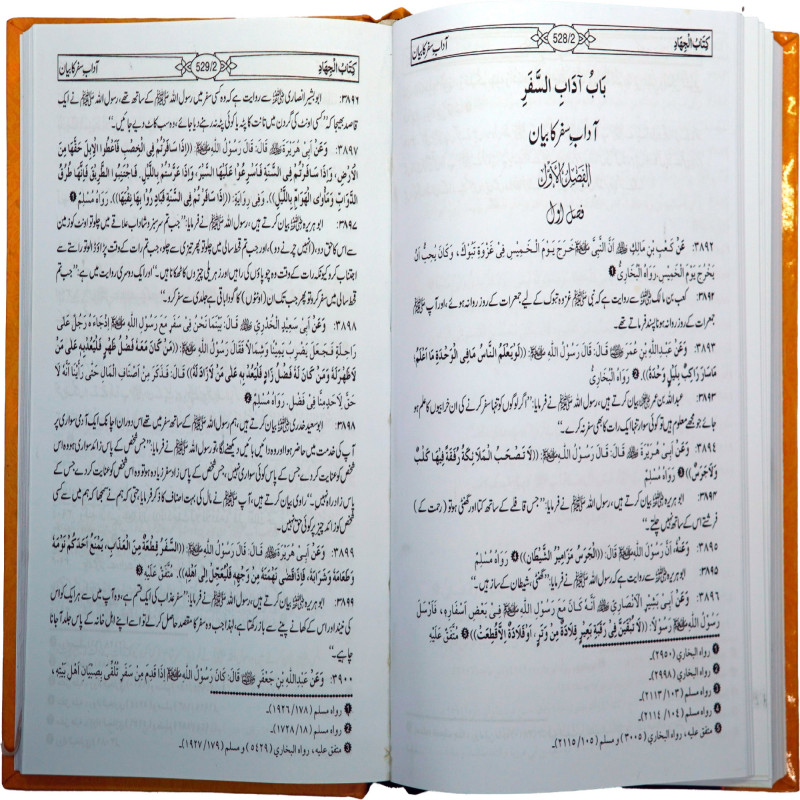 كِتَابُ الْجِهَادِ
528/2
آدابِ سفر کا بیان
بَابُ آدَابِ السَّفَرِ
آدابِ سفر کا بیان
الفَصْلُ الْأَوَّلُ
فصل اول
٣٨٩٢: عَنْ كَعْبِ بْنِ مَالِكٍ ﷺ أَنَّ النَّبِيَّ ﷺ خَرَجَ يَوْمَ الْخَمِيسِ فِي غَزْوَةِ تَبُوْكَ، وَكَانَ يُحِبُّ أَنْ
يَخْرُجَ يَوْمَ الْخَمِيسِ. رَوَاهُ الْبُخَارِيُّ ❶
٣٨٩٢: کعب بن مالک سے روایت ہے کہ نبی ﷺ غزوہ تبوک کے لیے جمعرات کے روز روانہ ہوئے، اور آپ ﷺ
جمعرات کے روز روانہ ہونا پسند فرماتے تھے۔
٣٨٩٣: وَعَنْ عَبْدِاللَّهِ بْنِ عُمَرَ قَالَ: قَالَ رَسُوْلُ اللَّهِ ﷺ: ((لَوْ يَعْلَمُ النَّاسُ مَا فِي الْوَحْدَةِ مَا أَعْلَمُ،
مَا سَارَ رَاكِبٌ بِلَيْلٍ وَحْدَهُ)). ❷ رَوَاهُ الْبُخَارِيُّ
٣٨٩٣: عبداللہ بن عمر بیان کرتے ہیں، رسول اللہ ﷺ نے فرمایا: ’’اگر لوگوں کو تنہا سفر کرنے کی ان خرابیوں کا علم ہو
جائے جو مجھے معلوم ہیں تو کوئی سوار تنہا ایک رات کا بھی سفر نہ کرے۔‘‘
٣٨٩٤: وَعَنْ أَبِي هُرَيْرَةَ قَالَ: قَالَ رَسُوْلُ اللَّهِ ﷺ: ((لَا تَصْحَبُ الْمَلَائِكَةُ رُفْقَةً فِيْهَا كَلْبٌ
وَلَا جَرَسٌ)) ❸ رَوَاهُ مُسْلِمٌ
٣٨٩٤: ابو ہریرہ بیان کرتے ہیں، رسول اللہ ﷺ نے فرمایا: ’’جس قافلے کے ساتھ کتا اور گھنٹی ہو تو (رحمت کے)
فرشتے اس کے ساتھ نہیں چلتے۔‘‘
٣٨٩٥: وَعَنْهُ، أَنَّ رَسُوْلَ اللَّهِ ﷺ قَالَ: ((الْجَرَسُ مَزَامِيْرُ الشَّيْطَانِ)) ❹ رَوَاهُ مُسْلِمٌ
٣٨٩٥: ابو ہریرہ سے روایت ہے کہ رسول اللہ ﷺ نے فرمایا: ’’گھنٹی، شیطان کے ساز ہیں۔‘‘
٣٨٩٦: وَعَنْ أَبِي بَشِيْرٍ الْأَنْصَارِيِّ أَنَّهُ كَانَ مَعَ رَسُوْلِ اللَّهِ ﷺ فِي بَعْضِ أَسْفَارِهِ، فَأَرْسَلَ
رَسُوْلُ اللَّهِ ﷺ رَسُوْلًا: ((لَا تُبْقَيَنَّ فِي رَقَبَةِ بَعِيْرٍ قِلَادَةٌ مِنْ وَتَرٍ، أَوْ قِلَادَةٌ إِلَّا قُطِعَتْ)) ❺ مُتَّفَقٌ عَلَيْهِ
❶ رواه البخاري (٢٩٥٠)۔
❷ رواه البخاري (٢٩٩٨)۔
❸ رواه مسلم (١٠٣/ ٢١١٣)۔
❹ رواه مسلم (١٠٤/ ٢١١٤)۔
❺ متفق عليه، رواه البخاري (٣٠٠٥) و مسلم (١٠٥/ ٢١١٥)۔
كِتَابُ الْجِهَادِ
529/2
آدابِ سفر کا بیان
٣٨٩٦: ابوبشیر انصاری سے روایت ہے کہ وہ کسی سفر میں رسول اللہ ﷺ کے ساتھ تھے، رسول اللہ ﷺ نے ایک
قاصد بھیجا کہ ’’کسی اونٹ کی گردن میں تانت کا پٹہ یا کوئی پٹہ نہ رہنے دیا جائے، وہ سب کاٹ دیے جائیں۔‘‘
٣٨٩٧: وَعَنْ أَبِي هُرَيْرَةَ قَالَ: قَالَ رَسُوْلُ اللَّهِ ﷺ: ((إِذَا سَافَرْتُمْ فِي الْخِصْبِ فَأَعْطُوا الْإِبِلَ حَقَّهَا مِنَ
الْأَرْضِ، وَإِذَا سَافَرْتُمْ فِي السَّنَةِ فَأَسْرِعُوْا عَلَيْهَا السَّيْرَ، وَإِذَا عَرَّسْتُمْ بِاللَّيْلِ، فَاجْتَنِبُوا الطَّرِيْقَ فَإِنَّهَا طُرُقُ
الدَّوَابِّ وَمَأْوَى الْهَوَامِّ بِاللَّيْلِ)). وَفِي رِوَايَةٍ: ((إِذَا سَافَرْتُمْ فِي السَّنَةِ فَبَادِرُوْا بِهَا نِقْيَهَا)). رَوَاهُ مُسْلِمٌ ❶
٣٨٩٧: ابو ہریرہ بیان کرتے ہیں، رسول اللہ ﷺ نے فرمایا: ’’جب تم سرسبز و شاداب علاقے میں چلو تو اونٹ کو زمین
سے اس کا حق دو، (انہیں چرنے دو)، اور جب تم قحط سالی میں چلو تو پھر تیزی سے چلو، جب تم رات کے وقت پڑاؤ ڈالو تو راستے سے
اجتناب کرو کیونکہ رات کے وقت وہ چوپاؤں کی راہیں اور زہریلی چیزوں کا ٹھکانا ہیں۔‘‘ اور ایک دوسری روایت میں ہے: ’’جب تم
قحط سالی میں سفر کرو تو پھر جب تک ان (اونٹوں) کا گودا باقی ہے جلدی سے سفر کرو۔‘‘
٣٨٩٨: وَعَنْ أَبِي سَعِيْدٍ الْخُدْرِيِّ قَالَ: بَيْنَمَا نَحْنُ فِي سَفَرٍ مَعَ رَسُوْلِ اللَّهِ ﷺ إِذْ جَاءَهُ رَجُلٌ عَلَى
رَاحِلَةٍ فَجَعَلَ يَضْرِبُ يَمِيْنًا وَشِمَالًا فَقَالَ رَسُوْلُ اللَّهِ ﷺ: ((مَنْ كَانَ مَعَهُ فَضْلُ ظَهْرٍ فَلْيَعُدْ بِهِ عَلَى مَنْ
لَا ظَهْرَ لَهُ وَمَنْ كَانَ لَهُ فَضْلُ زَادٍ فَلْيَعُدْ بِهِ عَلَى مَنْ لَا زَادَ لَهُ)) قَالَ: فَذَكَرَ مِنْ أَصْنَافِ الْمَالِ حَتَّى رَأَيْنَا أَنَّهُ لَا
حَقَّ لِأَحَدٍ مِنَّا فِي فَضْلٍ. رَوَاهُ مُسْلِمٌ ❷
٣٨٩٨: ابوسعید خدری بیان کرتے ہیں، ہم رسول اللہ ﷺ کے ساتھ سفر میں تھے اس دوران اچانک ایک آدمی سواری پر
آپ کی خدمت میں حاضر ہوا اور وہ دائیں بائیں دیکھنے لگا، تو رسول اللہ ﷺ نے فرمایا: ’’جس شخص کے پاس زائد سواری ہو وہ اس
شخص کو عنایت کر دے جس کے پاس کوئی سواری نہیں، جس شخص کے پاس زاد سفر زیادہ ہو تو وہ اس شخص کو عنایت کر دے جس کے
پاس زاد راہ نہیں۔‘‘ راوی بیان کرتے ہیں، آپ ﷺ نے مال کی بہت اصناف کا ذکر فرمایا حتی کہ ہم نے سمجھا کہ ہم میں سے کسی
شخص کو زائد چیز پر کوئی حق نہیں۔
٣٨٩٩: وَعَنْ أَبِي هُرَيْرَةَ قَالَ: قَالَ رَسُوْلُ اللَّهِ ﷺ: ((السَّفَرُ قِطْعَةٌ مِنَ الْعَذَابِ، يَمْنَعُ أَحَدَكُمْ نَوْمَهُ
وَطَعَامَهُ وَشَرَابَهُ، فَإِذَا قَضَى نَهْمَتَهُ مِنْ وَجْهِهِ فَلْيُعَجِّلْ إِلَى أَهْلِهِ)). مُتَّفَقٌ عَلَيْهِ ❸
٣٨٩٩: ابو ہریرہ بیان کرتے ہیں، رسول اللہ ﷺ نے فرمایا: ’’سفر عذاب کی ایک قسم ہے، وہ آپ میں سے ہر ایک کو اس
کی نیند اور اس کے کھانے پینے سے باز رکھتا ہے، لہٰذا جب وہ سفر کا مقصد حاصل کر لے تو اسے اپنے اہل خانہ کے پاس جلد آ جانا
چاہیے۔‘‘
٣٩٠٠: وَعَنْ عَبْدِاللَّهِ بْنِ جَعْفَرٍ قَالَ: كَانَ رَسُوْلُ اللَّهِ ﷺ إِذَا قَدِمَ مِنْ سَفَرٍ تُلُقِّيَ بِصِبْيَانِ أَهْلِ بَيْتِهِ،
❶ رواه مسلم (١٧٨/ ١٩٢٦)۔
❷ رواه مسلم (١٨/ ١٧٢٨)۔
❸ متفق عليه، رواه البخاري (٥٤٢٩) و مسلم (١٧٩/ ١٩٢٧)۔